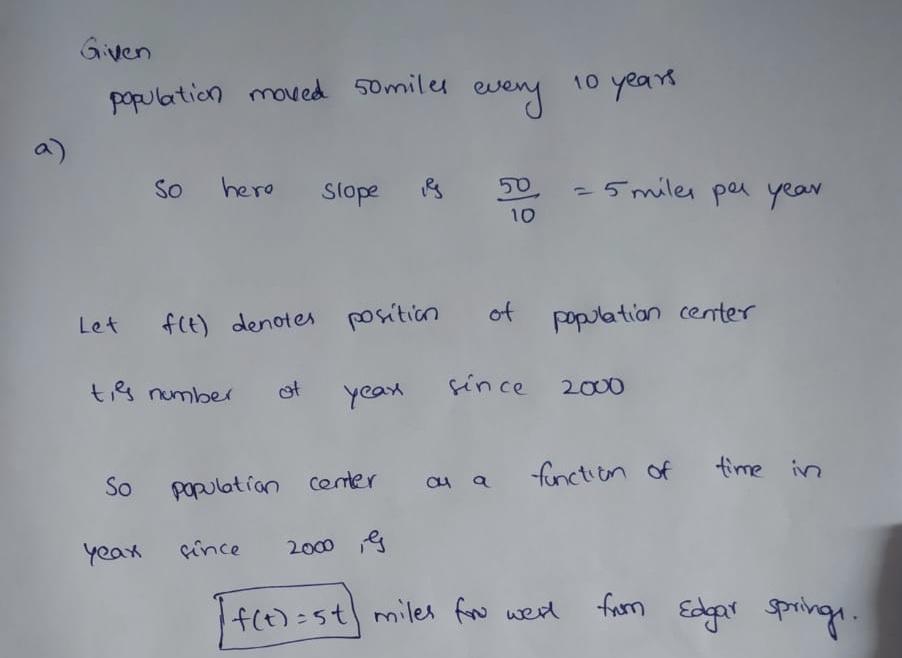 Given
population moved 50 miles every 10 years
a)
So here slope is 50/10 = 5 miles per year
Let f(t) denotes position of population center
t is number of years since 2000
So population center as a function of time in
years since 2000 is
f(t) = 5t miles west from Edgar springs.